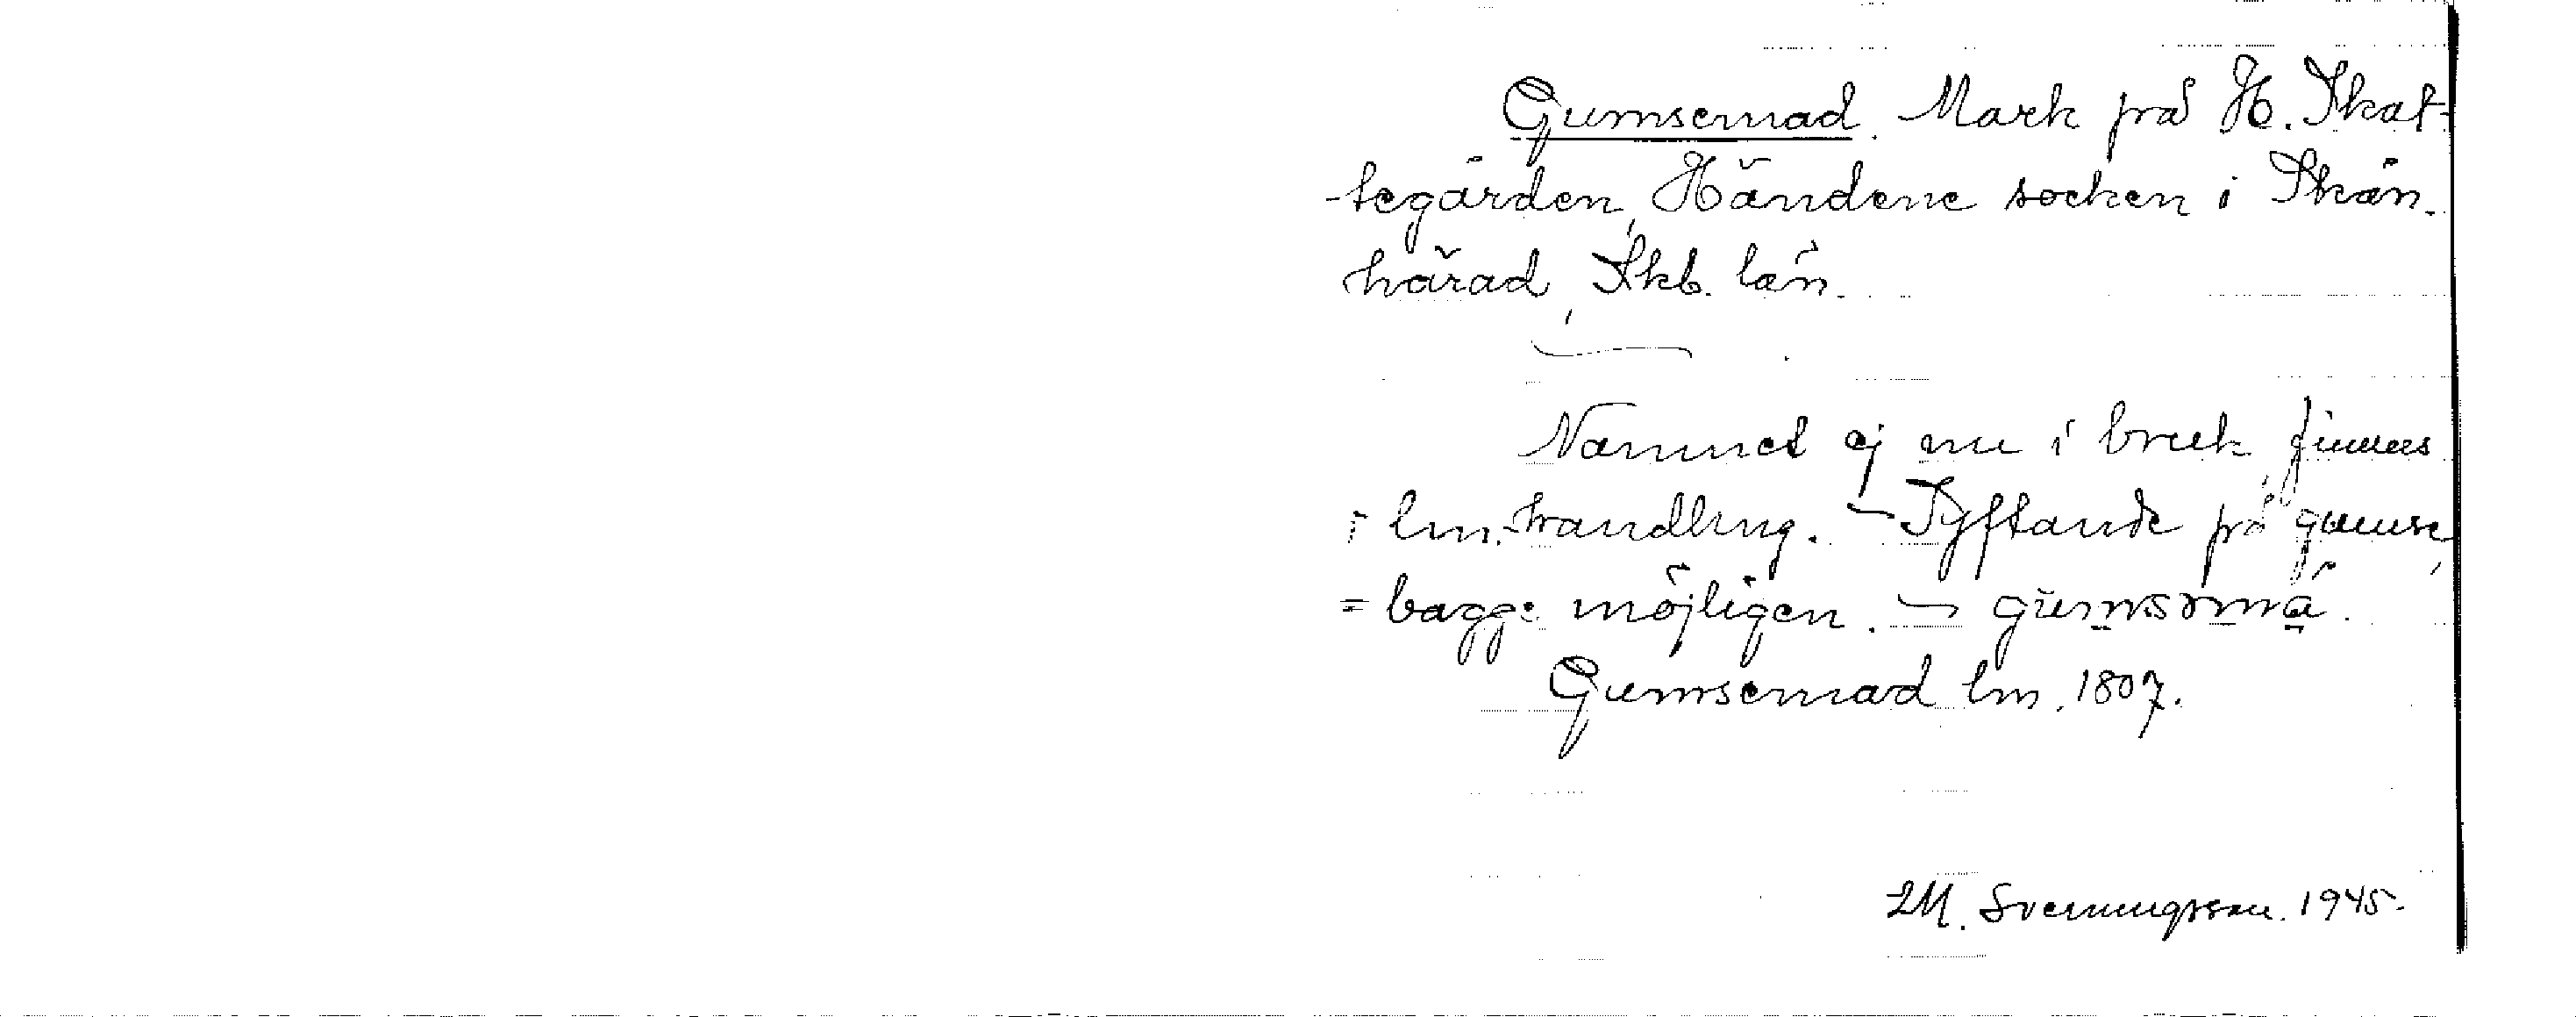 Gumsemad. Mark på H. Skat-
-tegården, Händene socken i Skån.
härad, Skb. län.
Namnet ej nu i bruk, finnes
i lm.-handling. – Syftande på gumse,
= bagge möjligen. –
Gumsemad lm. 1807.
M. Sverningsson. 1945.